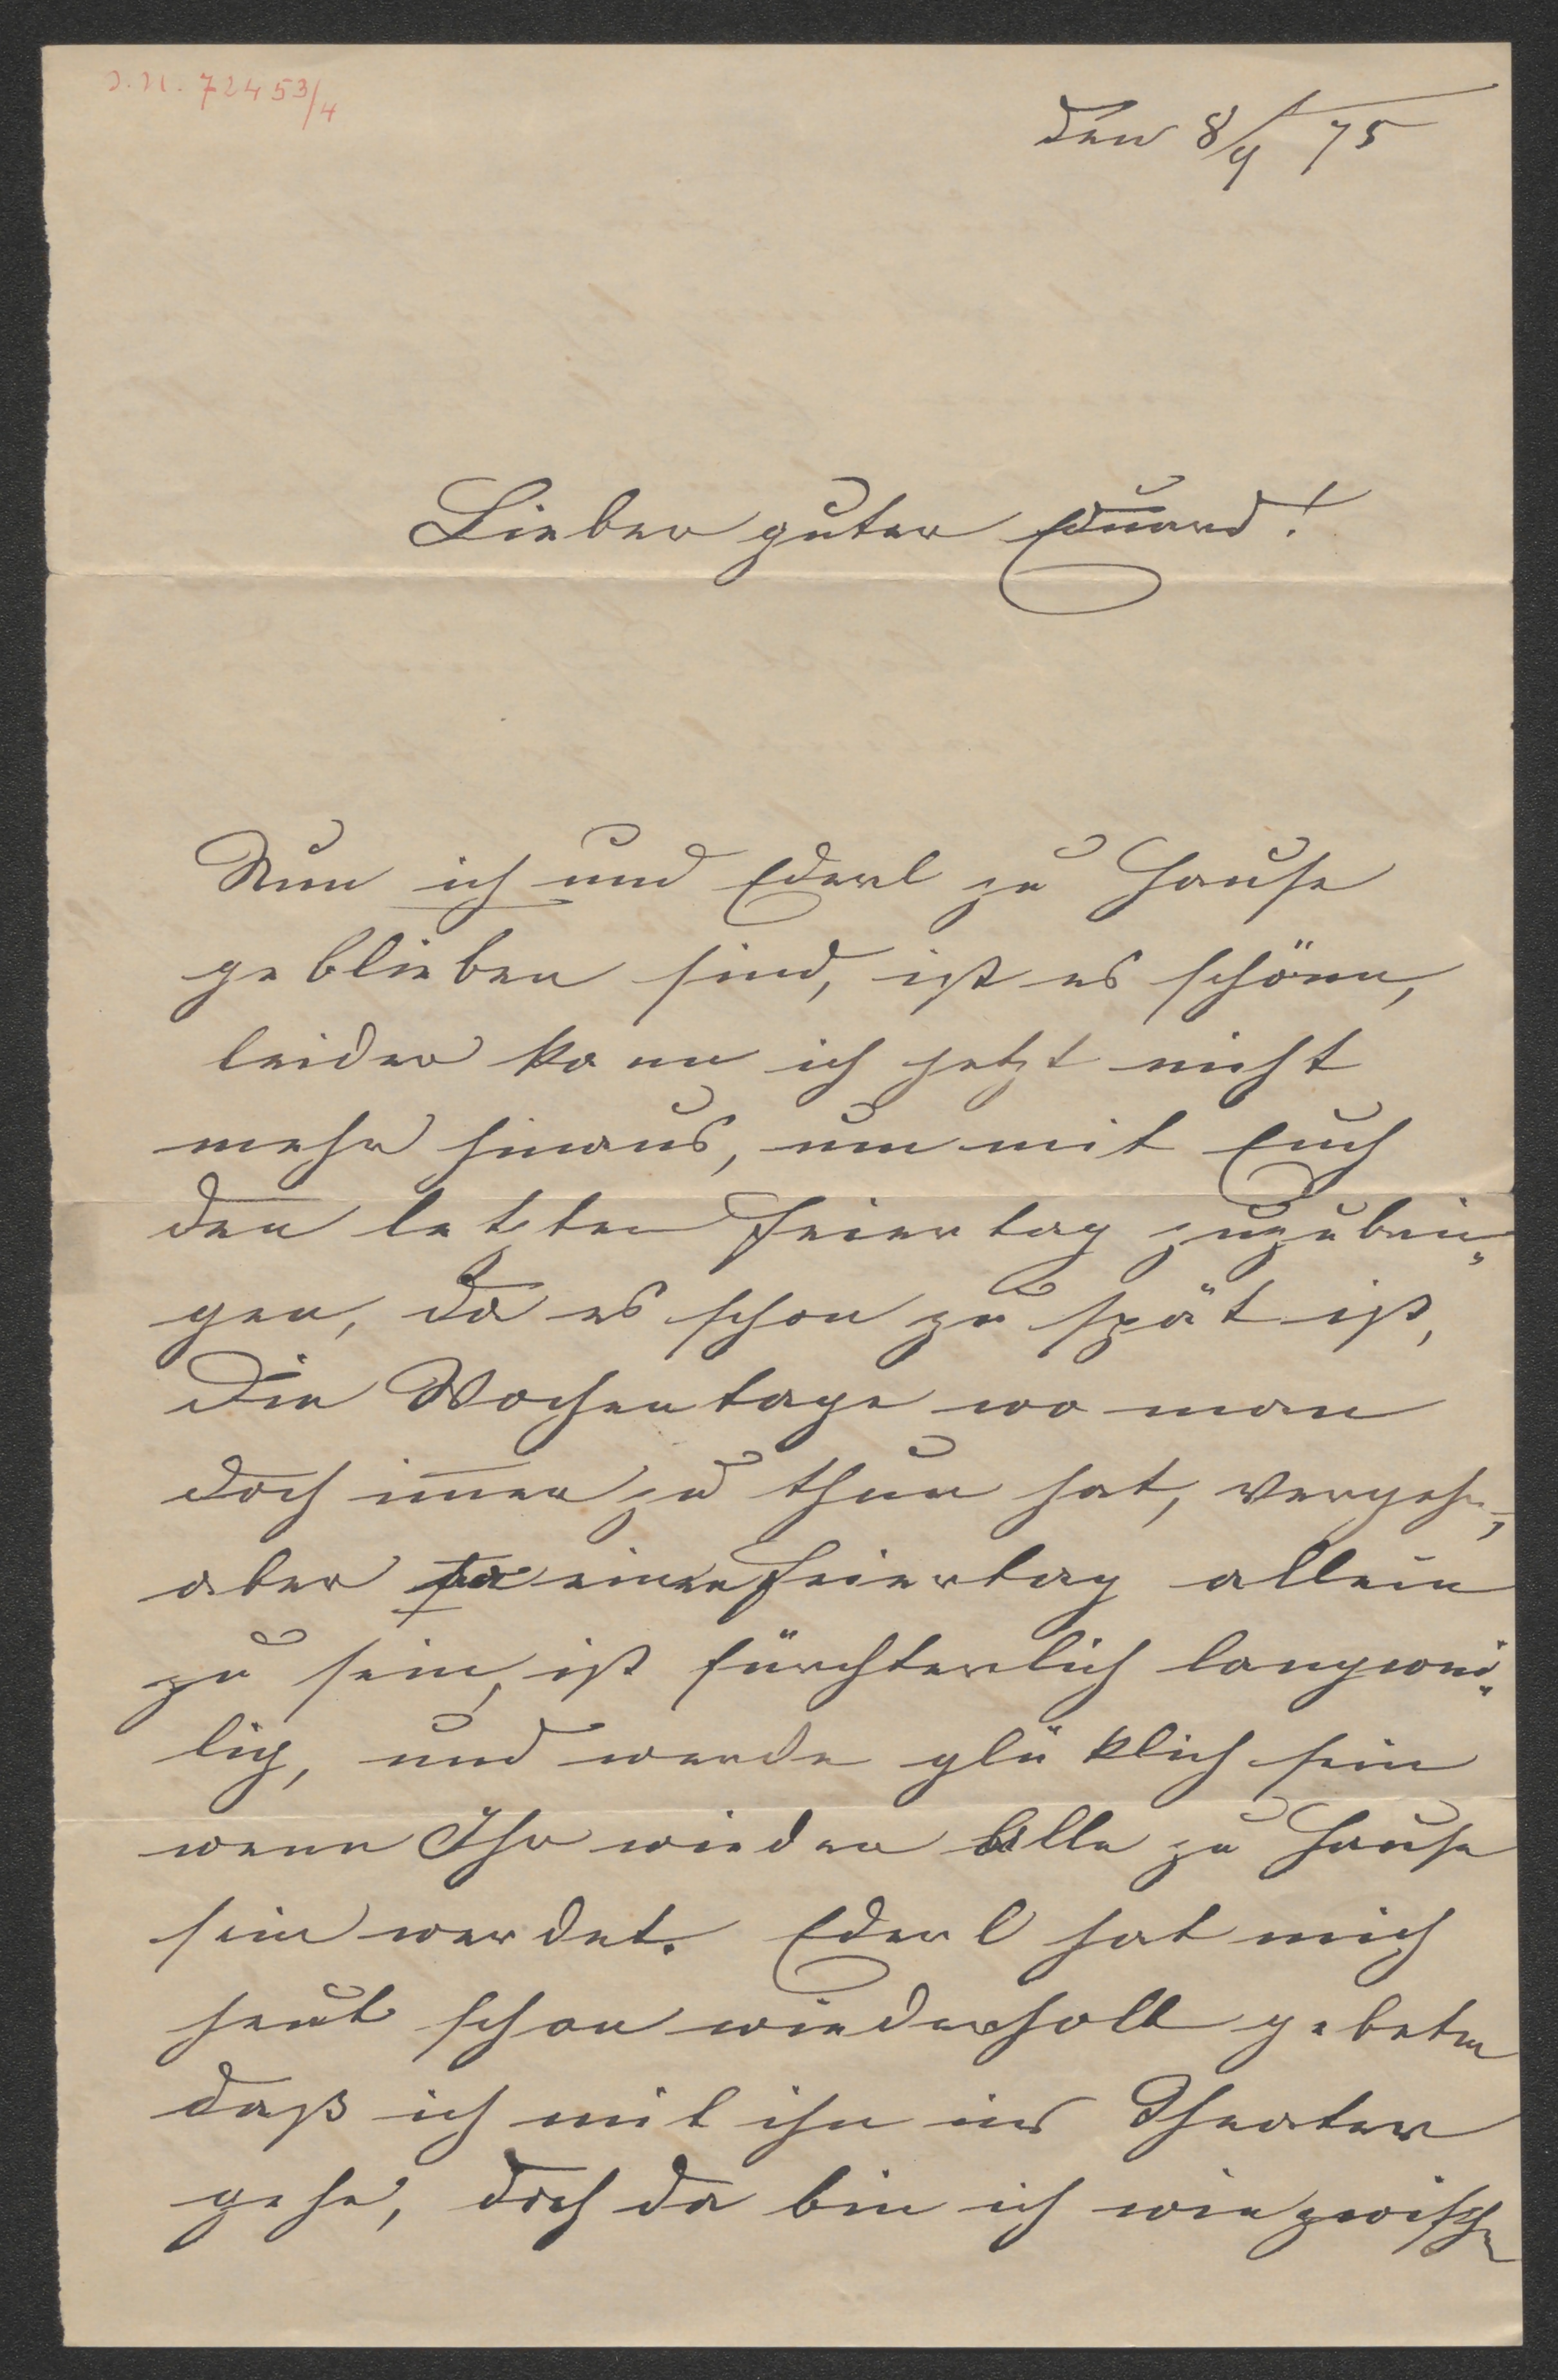 I.N. 72453/4
den 8/9 75
Lieber guter Eduard!
Nun ich und Ederl zu Hause
geblieben sind, ist es schönn,
leider kann ich jetzt nicht
mehr hinaus, um mit Euch
den letzten Feiertag zuzubrin„
gen, da es schon zu spät ist,
die Wochentage wo man
doch im̅er zu thun hat, vergehn,
aber einen Feiertag allein
zu sein, ist fürchterlich langwei„
lig, und werde glüklich sein
wenn Ihr wieder alle zu Hause
sein werdet. Ederl hat mich
heut schon wiederholt gebeten
daß ich mit ihn ins Theater
gehe, doch da bin ich wie zwischen